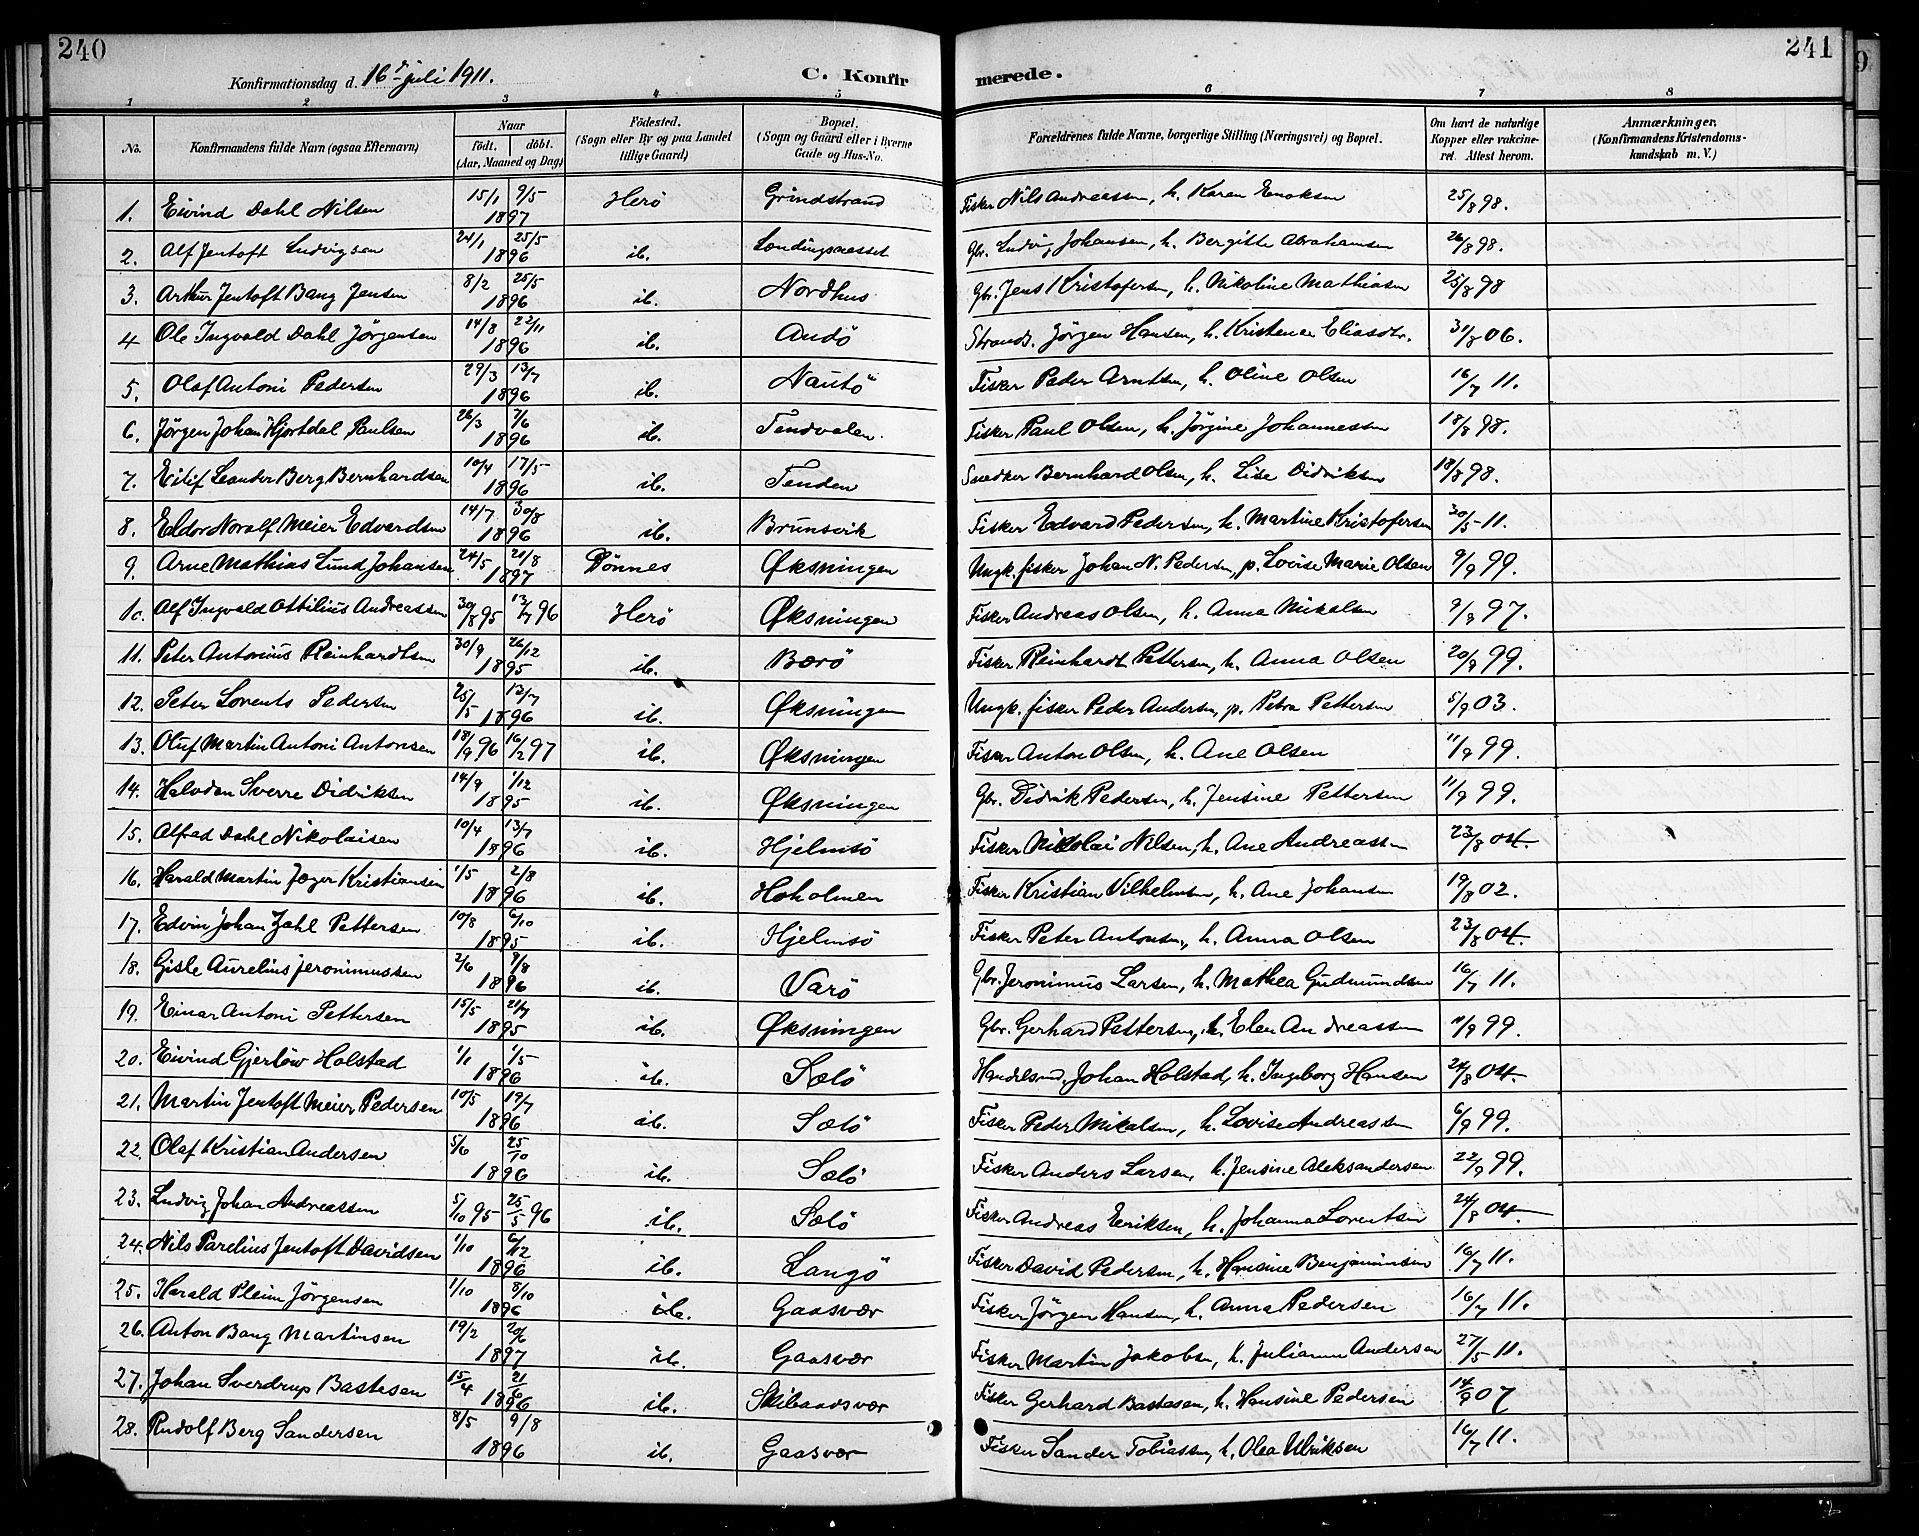 240
241
Konfirmationsdag d. 16de juli 1911.
C. Konfirmerede.
1 2 3 4 5 6 7 8
No. Konfirmandens fulde Navn (ogsaa Efternavn) Naar født. døbt. (Aar, Maaned og Dag) Fødested. (Sogn eller By og paa Landet tillige Gaard) Bopæl. (Sogn og Gaard eller i Byerne Gade og Hus-No. Forældrenes fulde Navne, borgerlige Stilling (Næringsvei) og Bopæl. Om havt de naturlige Kopper eller vakcineret. Attest herom. Anmærkninger. (Konfirmandens Kristendomskundskab m. V.)
1. Eivind Dahl Nilsen 15/1 9/5 1897 Herö Grindstrand Fisker Nils Andreassen, h. Karen Enoksen 25/8 98.
2. Alf Jentoft Ludvigsen 24/1 25/5 1896 ib. Landingsnesset Gbr. Ludvig Johansen, h. Bergitte Abrahamsen 26/8 98.
3. Arthur Jentoft Bang Jensen 8/2 25/5 1896 ib. Nordhus Gbr. Jens Kristofersen, h. Nikoline Mathiasen 25/8 98
4 Ole Ingvald Dahl Jörgensen 14/8 22/11 1896 ib. Andö Strands. Jörgen Hansen, h. Kristense Eliasdtr. 31/8 06.
5. Olaf Antoni Pedersen 29/3 13/7 1896 ib. Nautö Fisker Peder Arntsen, h. Oline Olsen 16/7 11.
6. Jörgen Johan Hjortdal Paulsen 26/3 7/6 1896 ib. Tendvalen. Fisker Paul Olsen, h. Jörgine Johannessen 18/8 98.
7. Eilif Leander Berg Bernhardsen 10/4 17/5 1896 ib. Tenden Snedker Bernhard Olsen, h. Lise Didriksen 18/8 98.
8. Eldor Noralf Meier Edvardsen 14/7 30/8 1896 ib. Brunsvik Fisker Edvard Pedersen, h. Martine Kristofersen 30/5-11.
9. Arne Mathias Lund Johansen 24/5 21/8 1897 Dönnes Øksningen Ungk. fisker Johan N. Pedersen, p. Lovise Marie Olsen 9/9 99.
10. Alf Ingvald Ottilius Andreassen 30/8 95 13/7 96 Herö Øksningen Fisker Andreas Olsen, h. Anna Mikalsen 9/9 97.
11. Peter Antonius Reinhardtsen 30/9 26/12 1895 ib. Bærö Fisker Reinhardt Pettersen, h. Anna Olsen 20/9 99.
12. Peter Lorents Pedersen 25/5 13/7 1896 ib. Øksningen Ungk. fisker Peder Andersen, p. Petra Pettersen 5/9 03.
13. Oluf Martin Antoni Antonsen 18/9 96 16/2 97 ib. Øksningen Fisker Anton Olsen, h. Ane Olsen 11/9 99.
14. Halvdan Sverre Didriksen 14/9 1/12 1895 ib. Øksningen Gbr. Didrik Pedersen, h. Jensine Pettersen 11/9 99.
15. Alfred Dahl Nikolaisen 10/4 13/7 1896 ib. Hjelmsö Fisker Nikolai Nilsen, h. Ane Andreassen 23/8 04.
16. Harald Martin Jæger Kristiansen 1/5 2/8 1896 ib. Hoholmen Fisker Kristian Vilhelmsen, h. Ane Johansen 19/8 02.
17. Edvin Johan Zahl Pettersen 10/8 6/10 1895 ib. Hjelmsö Fisker Peter Antonsen, h. Anna Olsen 23/8 04.
18. Gisle Aurelius Jeronimussen 2/6 9/8 1896 ib. Varö Gbr. Jeronimus Larsen, h. Mathea Gudmundsen 16/7 11.
19. Einar Antoni Pettersen 15/5 21/7 1895 ib. Øksningen Gbr. Gerhard Pettersen, h. Elen Andreassen 11/9 99.
20. Eivind Gjerløw Holstad 1/1 1/5 1896 ib. Sælö Handelsmd, Johan Holstad, h. Ingeborg Hansen 24/8 04.
21. Martin Jentoft Meier Pedersen 10/5 19/7 1896 ib. Sælö Fisker Peder Mikalsen, h. Lovise Andreassen 6/9 99.
22. Olaf Kristian Andersen 5/6 25/10 1896 ib. Sælö Fisker Anders Larsen, h. Jensine Aleksandersen 22/9 99.
23. Ludvig Johan Andreassen 5/10 95 25/5 96 ib. Sælö Fisker Andreas Eeriksen, h. Johanna Lorentsen 24/8 04.
24. Nils Parelius Jentoft Davidsen 1/10 6/12 1896 ib. Langö Fisker David Pedersen, h. Hansine Benjaminsen 16/7 11.
25. Harald Pleim Jörgensen 1/10 8/10 1896 ib. Gaasvær Fisker Jörgen Hansen, h. Anna Pedersen 16/7 11.
26. Anton Bang Martinsen 19/2 20/6 1897 ib. Gaasvær Fisker Martin Jakobsen, h. Julianne Andersen 27/5 11.
27. Johan Sverdrup Bastesen 15/4 21/6 1896 ib. Skibaadsvær Fisker Gerhard Bastesen, h. Hansine Pedersen 14/9 07
28. Rudolf Berg Sandersen 8/5 9/8 1896 ib. Gaasvær Fisker Sander Tobiassen, h. Olea Ulriksen 16/7 11.